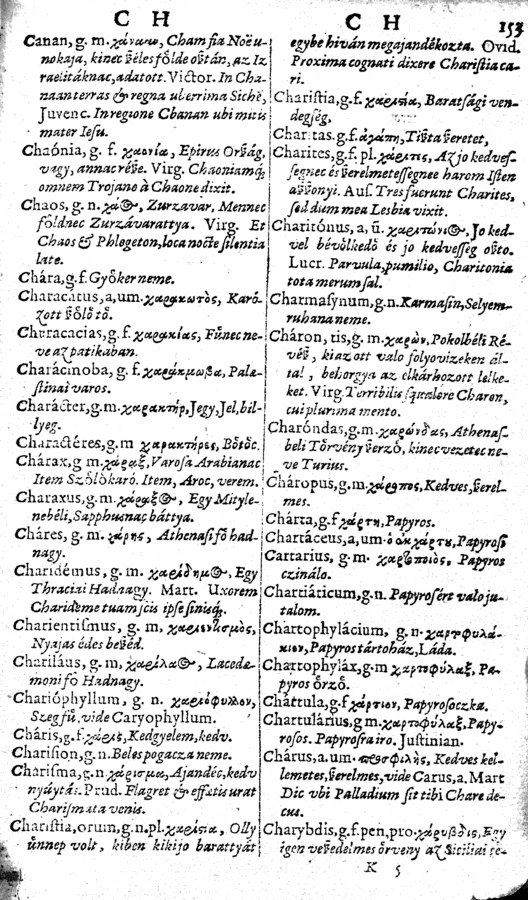 C H
C H 153
Canan, g. m. χάναων, Cham fia Noë u-
nokaja, kinec
Victor. In Cha-
naan terras & regna uberrima Sichẽ,
Juvenc. In regione Chanan ubi mitis
mater Iesu.
Chaónia, g. f. χαονία, Epirus
Virg. Chaoniamq́;
omnem Trojano à Chaone dixit.
Chaos, g. n. Zurzavar, Mennec
földnec Zurzávarattya. Virg. Et
Chaos & Phlegeton, loca nocte silentia
late.
Chára, g. f. Gyöker neme.
Characatus, a, um. χαρακωτὸς, Karó-
Characacias, g. f. χαρακίας, Fűnec ne-
Charácinoba, g. f. χαράκμωβα, Palæ-
stinai varos.
Charácter, g. m. χαρακτὴρ, Jegy, Jel, bil-
lyeg.
Charactéres, g. m χαρακτήρες,
Chárax, g m. χάραξ, Varosa Arabianac
Item Szőlőkaró. Item, Aroc, verem.
Charaxus, g. m. Egy Mityle-
nebéli, Sapphusnac báttya.
Cháres, g. m. χάρης, Athenasi fő had-
nagy.
Charidémus, g. m. Egy
Thraciai Hadnagy. Mart. Uxorem
Charideme tuam scis ipse sinisq́;.
Charientismus, g. m, χαριεντισμὸς,
Nyajas édes
Charilăus, g. m, Lacedæ-
moni fő Hadnagy.
Charióphyllum, g. n. χαριόφυλλον,
Szegfű, vide Caryophyllum.
Cháris, g. f. χάρις, Kedgyelem, kedv.
Charision, g. n. Beles pogacza neme.
Charisma, g. n. χάρισμα, Ajandéc, kedv
Prud. Flagret & effatis urat
Charismata venis.
Charistia, orum, g. n. pl. χαρίσια, Olly
ünnep volt, kiben kikijo barattyát
egybe hiván megajandékozta. Ovid.
Proxima cognati dixere Charistia ca-
ri.
Charistia, g. f. χαρισία, Baratsági ven-
degség,
Charitas, g. f. ἀγάπη,
Charites, g. f. pl. χάριτες, Az jo kedves-
harom Isten
Aus. Tres fuerunt Charites,
sed dum mea Lesbia vixit.
Charitónus, a, ũ. Jo ked-
vel bévölkedő és jo kedvesség
Lucr. Parvula, pumilio, Charitonia
tota merum sal.
Charmasynum, g. n. Karmasin, Selyem-
ruhananeme.
Cháron, tis, g. m. χαρὼν, Pokolbéli Ré-
kiaz ott valo folyovizeken ál-
tal, behorgya az elkárhozott lelke-
ket. Virg. Terribilis squalore Charon,
cui plurima mento.
Charóndas, g. m. χαρώνδας, Athenas-
beli kinec vezetec ne-
ve Turius.
Cháropus, g. m. χάροπος, Kedves,
mes.
Chárta, g. f χάρτη, Papyros.
Chartáceus, a, um. ὁ ἐκ χάρτυ, Papyrosi
Cartarius, g. m. χαρτοποιὸς, Papyros
czináló.
Chartiáticum, g. n. Papyrosért valo ju-
talom.
Chartophylácium, g. n. χαρτοφυλά-
κιον, Papyros tártoház, Láda.
Chartophylăx, g. m χαρτοφύλαξ, Pa-
pyros őrző.
Chártula, g. f χάρτιον, Papyrosoczka.
Chartulárius, g m. χαρτοφύλαξ, Papy-
rosos. Papyrosra iro. Justinian.
Chárus, a. um. προσφιλὴς, Kedves kel-
lemetes, vide Carus, a. Mart
Dic vbi Palladium sit tibi Chare de-
cus.
Charybdis, g. f. pen, pro. χάρυβδις, Egy
igen veszedelmes örveny az Siciliai
K 5